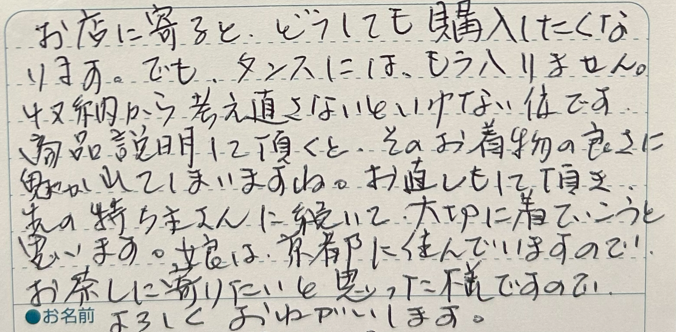 お店に寄ると、どうしても購入したくな
ります。でも、タンスには、もう入りません。
収納から考え直さないといけない位です。
商品説明して頂くと、そのお着物の良さに
魅かれてしまいますね。お直しもして頂き、
先の持ち主さんに続いて、大切に着ていこうと
思います。娘は、京都に住んでいますので、
お茶しに寄りたいと思った様ですので、
●お名前 よろしくおねがいします。